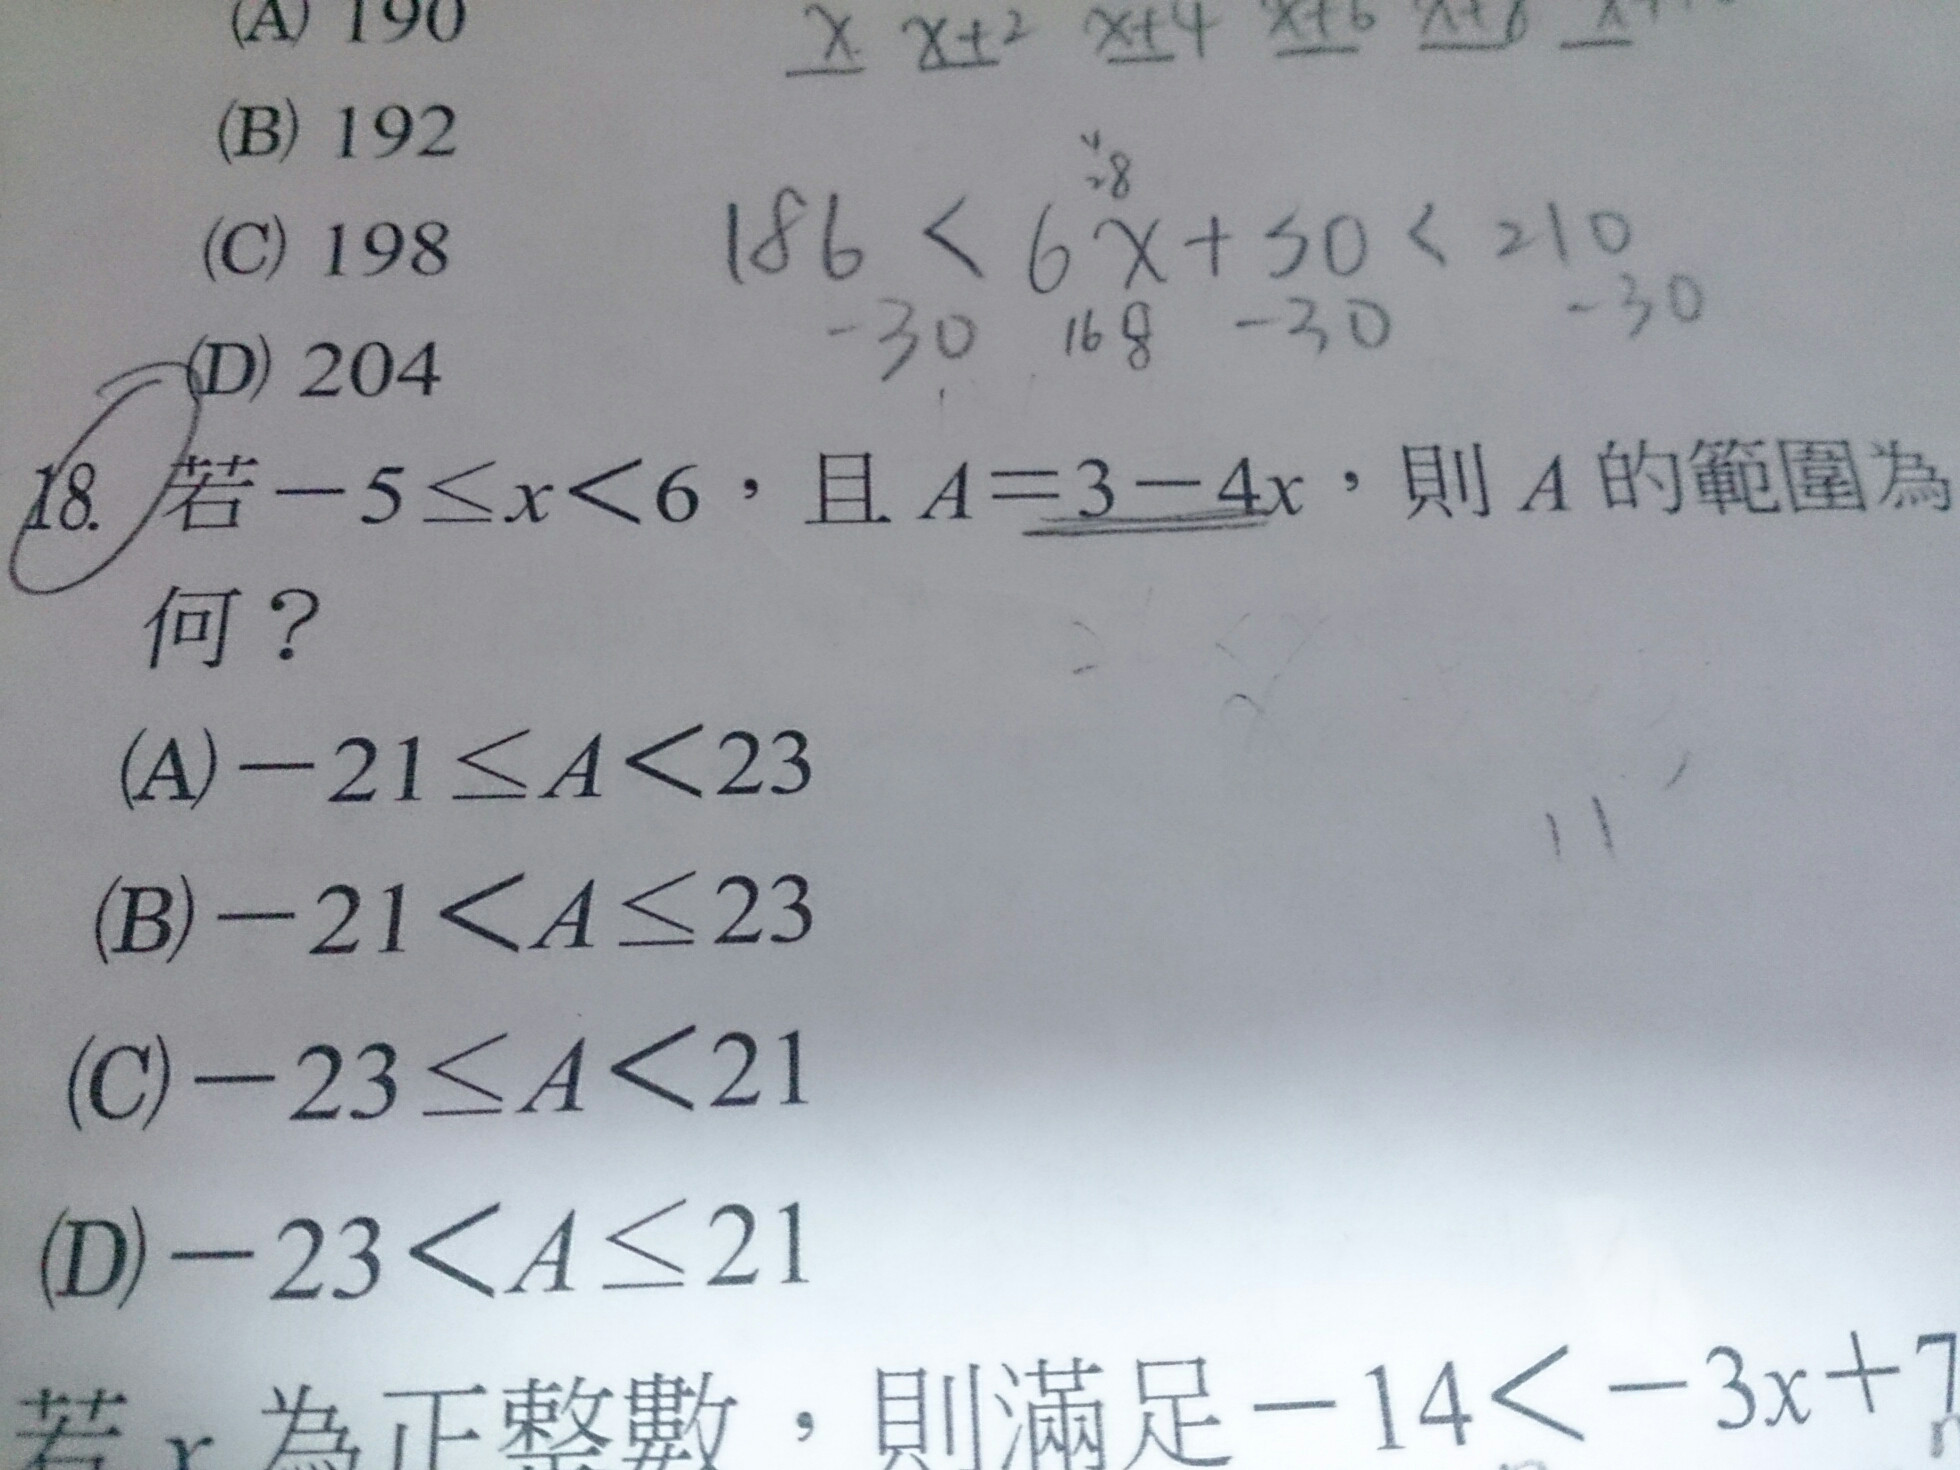 (A) 190
x x+2 x+4 x+6 x+8
(B) 192
28
(C) 198
186 < 6x+30 < 210
-30 168 -30 -30
(D) 204
18. 若-5≤x<6,且A=3-4x,則A的範圍為
何?
(A)-21≤A<23
11
(B)-21<A≤23
(C)-23≤A<21
(D)-23<A≤21
若x為正整數,則滿足-14<-3x+7